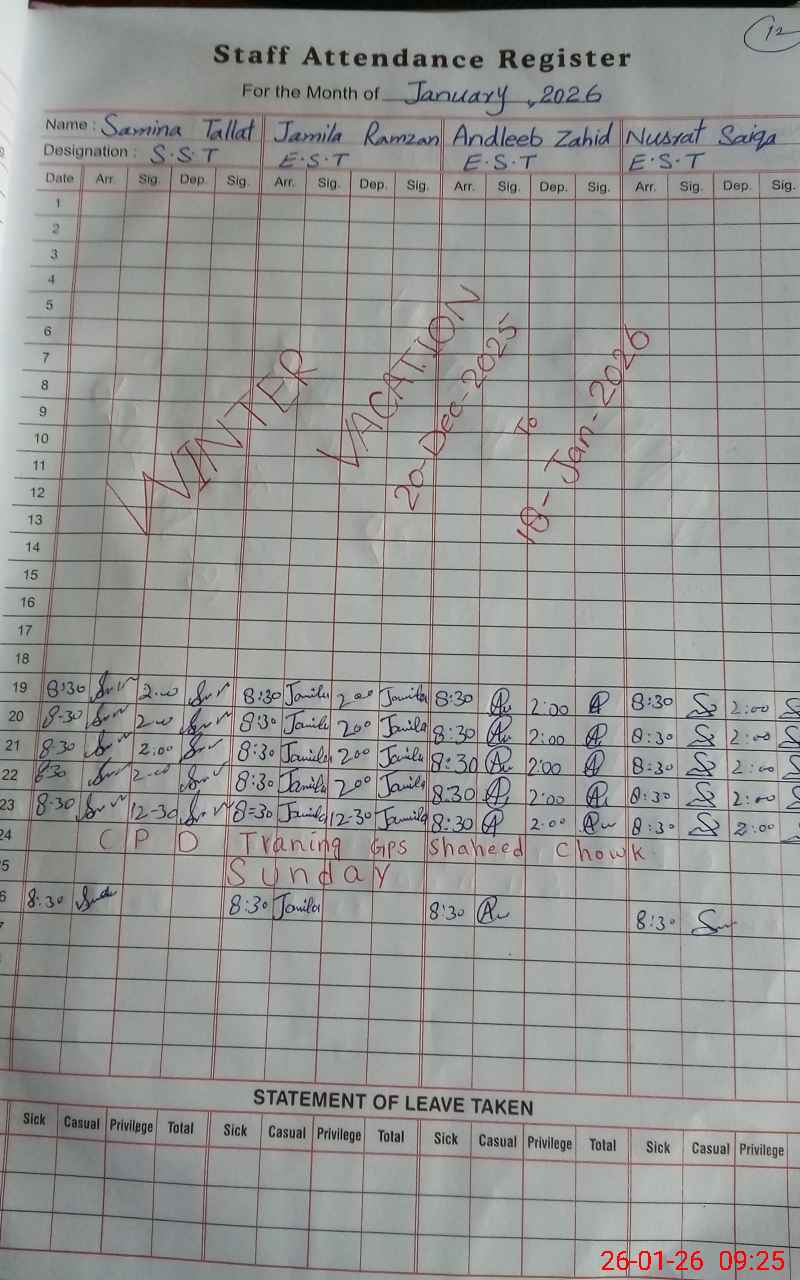 12
Staff Attendance Register
For the Month of January, 2026
Name : Samina Tallat Jamila Ramzan Andleeb Zahid Nusrat Saiqa
Designation : S.S.T E.S.T E.S.T E.S.T
Date Arr. Sig. Dep. Sig. Arr. Sig. Dep. Sig. Arr. Sig. Dep. Sig. Arr. Sig. Dep. Sig.
1
2
3
4
5
6
7
8
9
10
11
12
13
14
15
16
17
18
WINTER
VACATION
20-Dec-2025
To
18-Jan-2026
19 8:30 2:00 8:30 Jamila 200 Jamila 8:30 2:00 8:30 2:00
20 8-30 2-00 8:30 Jamila 200 Jamila 8:30 2:00 8:30 2:00
21 8-30 2:00 8:30 Jamila 200 Jamila 8:30 2:00 8:30 2:00
22 8:30 2-00 8:30 Jamila 200 Jamila 8:30 2:00 8:30 2:00
23 8-30 12-30 8-30 Jamila 12-30 Jamila 8:30 2:00 8:30 2:00
24 C P D Traning Gps Shaheed Chowk
5 Sunday
6 8:30 8:30 Jamila 8:30 8:30
STATEMENT OF LEAVE TAKEN
Sick Casual Privilege Total Sick Casual Privilege Total Sick Casual Privilege Total Sick Casual Privilege
26-01-26 09:25